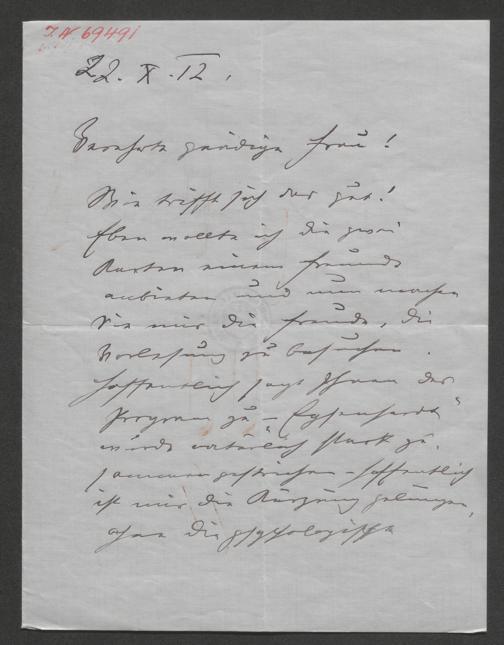 I. N 69491
22. X. 12.
Verehrte gnädige Frau!
Wie trifft sich das gut!
Eben wollte ich die zwei
Karten einem Freunde
anbieten und nun machen
Sie mir die Freude, die
Vorlesung zu besuchen.
Hoffentlich sagt Ihnen das
Program zu –
wurde natürlich stark zu-
sammengestrichen – hoffentlich
ist mir die Kürzung gelungen,
ohne die psychologische